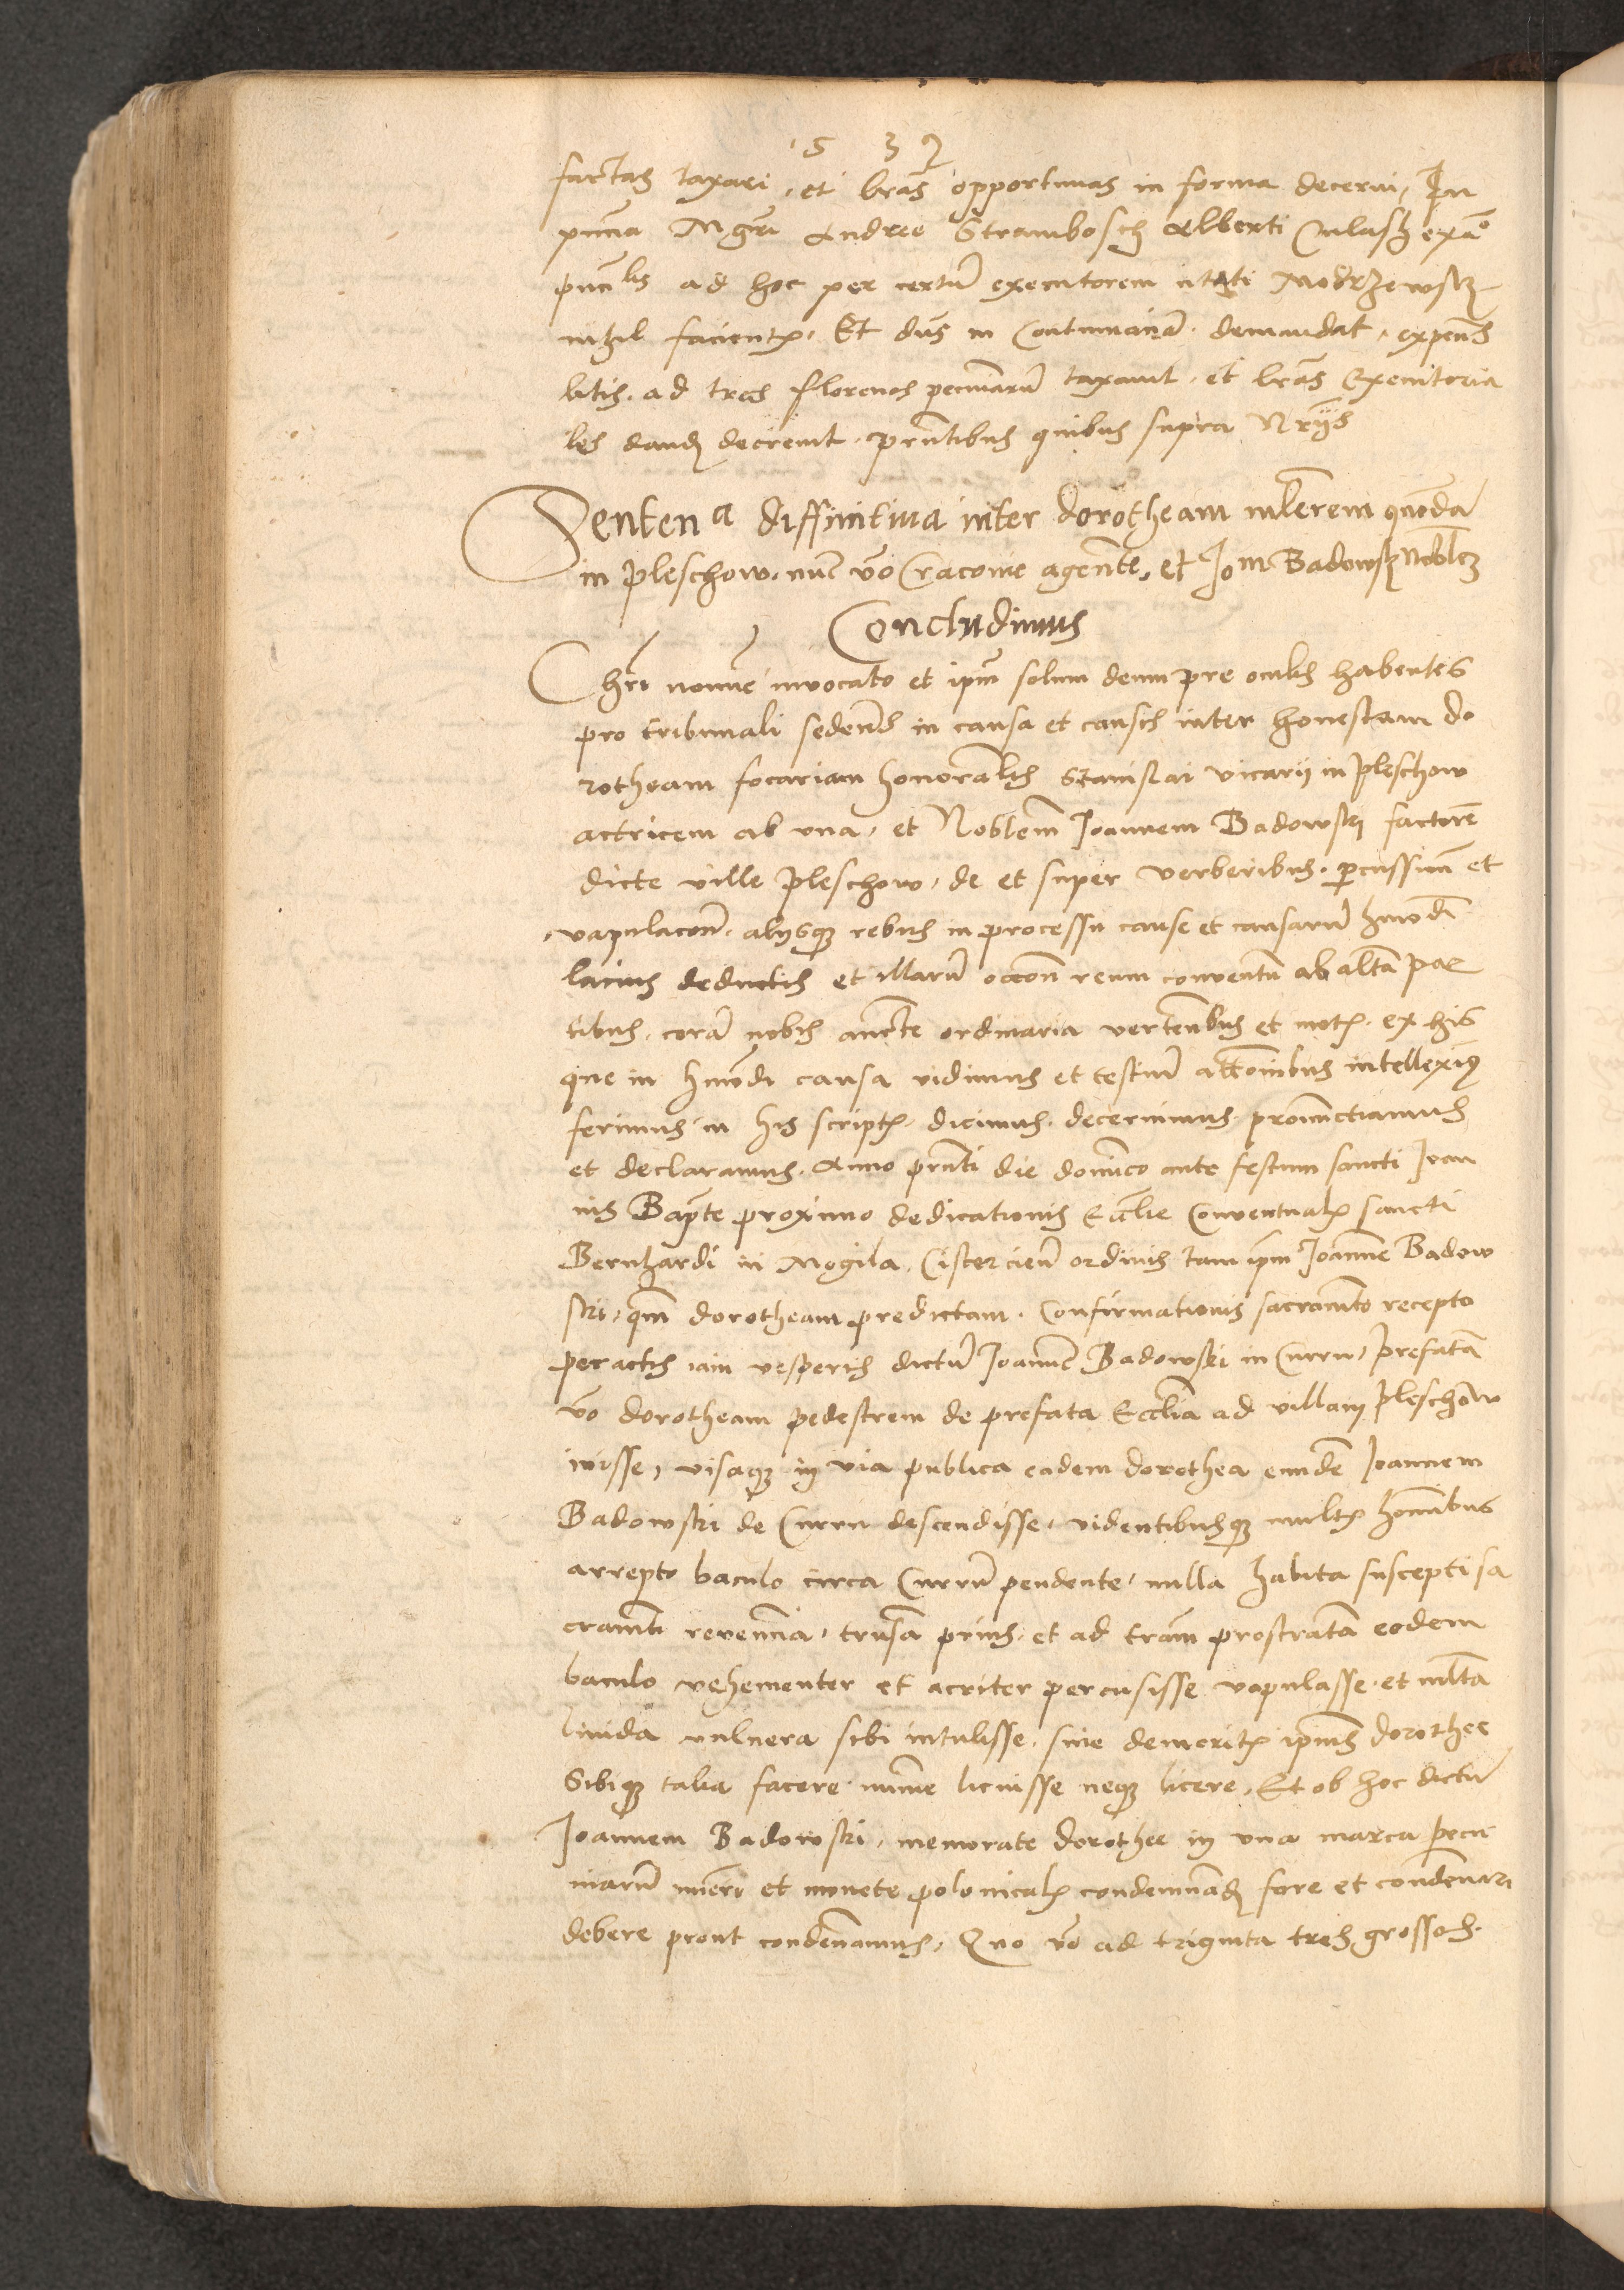 1 5 3 2
factas taxari, et l̃ras opportunas in forma decerni, In
pñcia Mgr̃i Andree Strambosch Alberti Culasch
pñclis ad hoc per certũ executorem citati Modrzewsky
nihil facientꝭ. Et dñs in Contumaciã demandat, expens̃
litis ad tres florenos pecuniarũ taxauit, et l̃ras Executoria
les dand̃ decreuit, pñtibus quibus supra Nr̃ijs
Sentenᵃ diffinitiua inter dorotheam ml̃erem quondã
in Pleschow, nũc vo Cracouie agente, et Joᵐ Badowsky Nobilẽ
Concludimus
Chrĩ nomine inuocato et ipm̃ solum deum pre oculis habentes
pro tribunali sedens̃ in causa et causis inter honestam do
rotheam focariam honorabilis Stanislai vicarij in Pleschow
actricem ab vna, et Nobilem Joannem Badowski factorẽ
dicte ville Pleschow, de et super verberibus, percussioñ et
vapulacoñ, alijsqꝫ rebus in processu cause et causarũ hm̃odi
latius deductis et illarũ occoñ reum conuentũ ab alta par
tibus, corã nobis aucte ordinaria vertentibus et motꝭ, ex his
que in hm̃odi causa vidimus et testiũ att̃onibus intelleximꝰ
ferimus in his scriptꝭ, dicimus, decernimus pronunctiamus
et declaramus. Anno pñti die dominico ante festum sancti Joan
nis Bapte proximo dedicationis Eccl̃ie Conuentualꝭ sancti
Bernhardi in Mogila, Cistercieñ ordinis tam ipm̃ Joannẽ Badow
ski, qm̃ dorotheam predictam, Confirmationis sacramẽto recepto
peractis iam vesperis dictũ Joannẽ Badowski in Curru, prefatã
vo dorotheam pedestrem de prefata Eccl̃ia ad villam Pleschow
iuisse, visaqꝫ in via publica eadem dorothea eundẽ Joannem
Badowski de Curru descendisse, videntibusqꝫ multꝭ hominibus
arrepto baculo circa Currũ pendente, nulla habita suscepti sa
cramẽti reuerencia, trusa prius, et ad terrã prostratã eodem
baculo vehementer et acriter percusisse vapulasse, et ml̃ta
liuida vulnera sibi intulisse, sine demeritꝭ ipsius dorothee
Sibiqꝫ talia facere minime licuisse neqꝫ licere, Et ob hoc dictũ
Joannem Badowski, memorate dorothee in vna marca pecu
niarũ nũeri et monete polonicalꝭ condemnand̃ fore et condemnari
debere prout condemnamus, Quo vo ad triginta tres grossos.